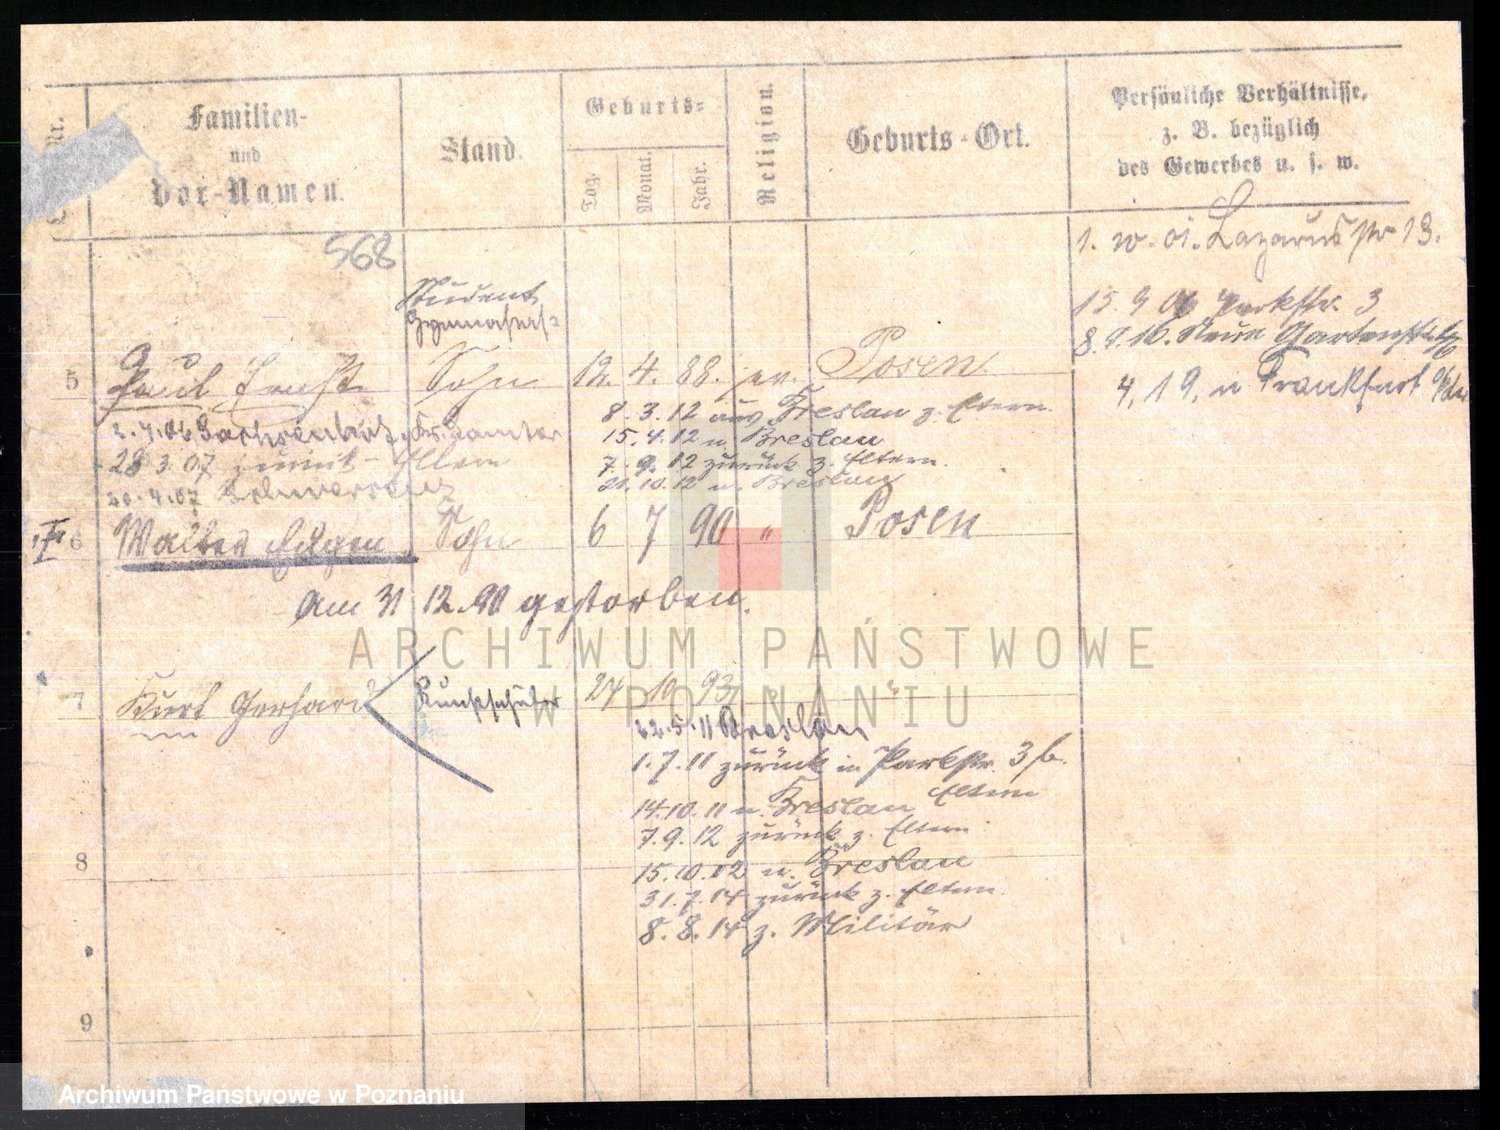 Nr.
Familien-
und
Vor-Namen.
Stand.
Geburts-
Tag.
Monat.
Jahr.
Religion.
Geburts-Ort.
Persönliche Verhältnisse,
z. B. bezüglich
des Gewerbes u. s. w.
568
1. 10. 01. Lazarusstr 13.
15 9 06 Parkstr. 3
8. 9. 10. Neue Gartenstr.
4, 19, n Frankfurt
Student
5 Paul Ernst Sohn 12. 4. 88. ev. Posen.
8. 3. 12 aus Breslau z. Eltern.
15. 4. 12 n. Breslau
7. 9. 12 zurück z. Eltern.
21. 10. 12 n. Breslau
2. 4. 06
28 3 07 zurück - Eltern
4. 07
6 Walter Eugen Sohn 6 7 90 " Posen
Am 31 12. 90 gestorben.
7 Kurt Gerhard 27 10 93 "
22. 5. 11 Breslau
1. 7. 11 zurück in Parkstr. 3
Eltern
14. 10. 11 n. Breslau
7. 9. 12 zurück z. Eltern
15. 10. 02 n. Breslau
31. 7. 14 zurück z. Eltern.
8. 8. 14 z. Militär
8
9
ARCHIWUM PAŃSTWOWE
W POZNANIU
Archiwum Państwowe w Poznaniu